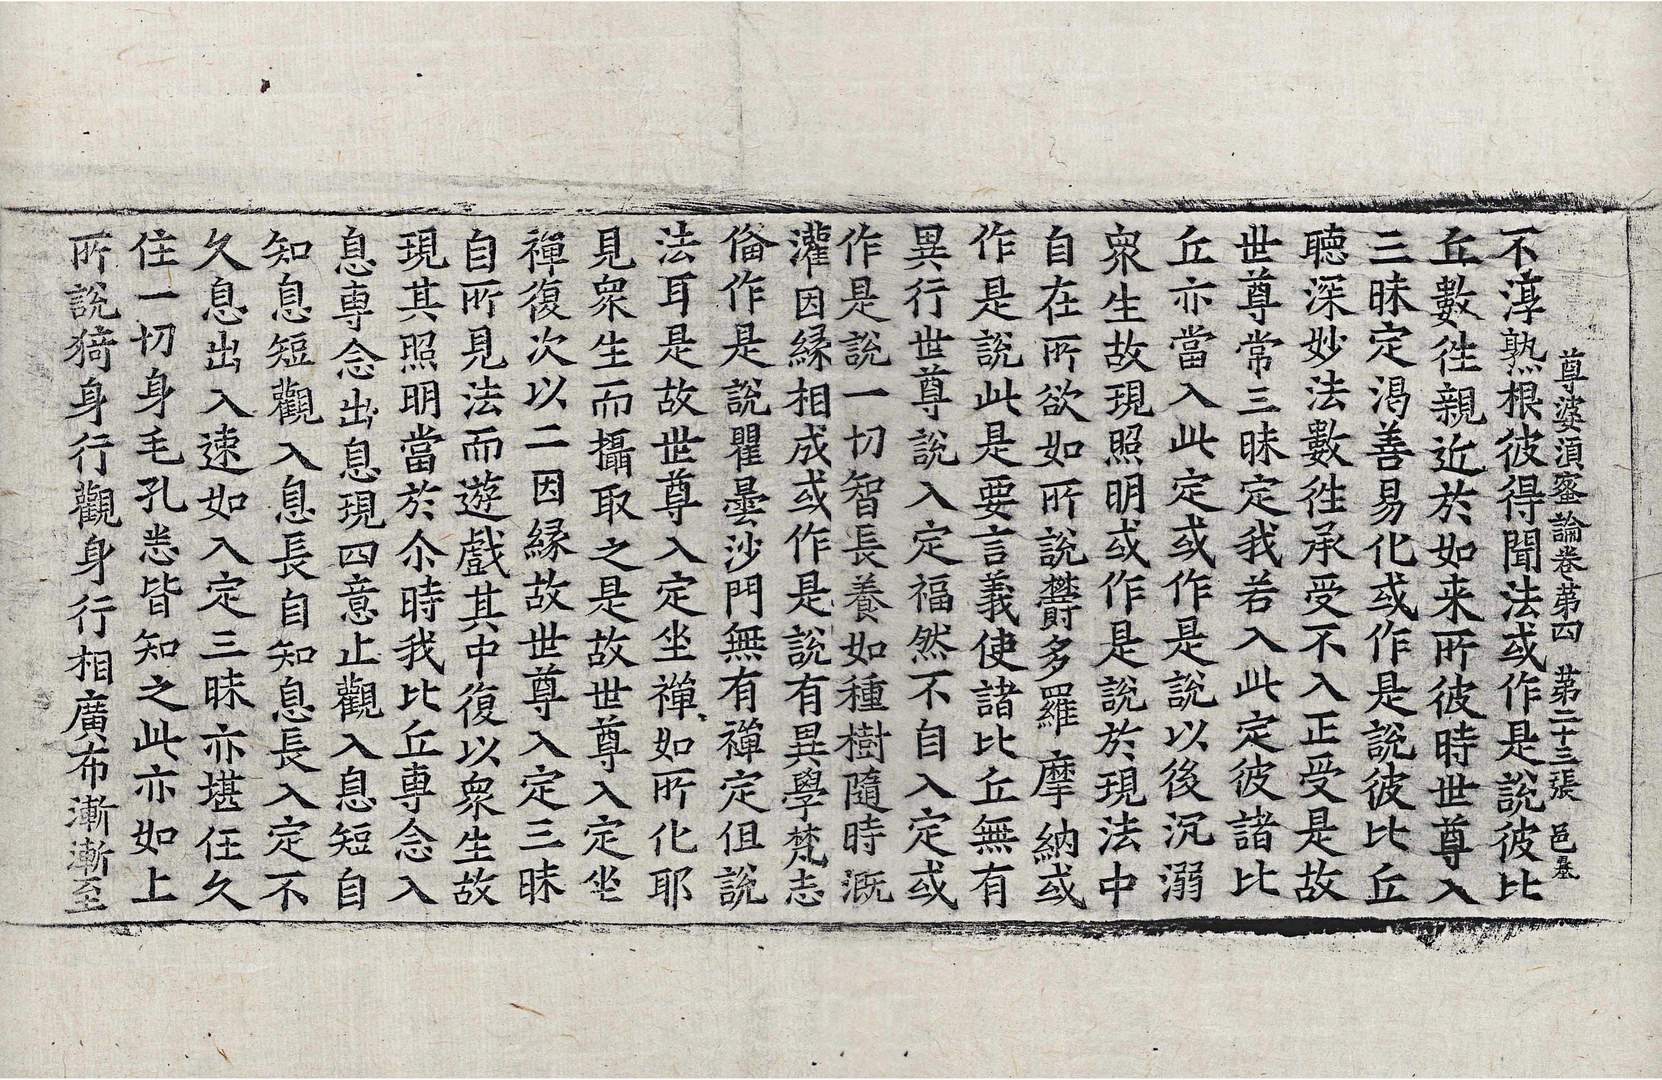 尊婆須蜜論卷第四 第二十三張 邑
不淳熟根彼得聞法或作是說彼比
丘數往親近於如来所彼時世尊入
三昧定渴善易化或作是說彼比丘
聽深妙法數往承受不入正受是故
世尊常三昧定我若入此定彼諸比
丘亦當入此定或作是說以後沉溺
衆生故現照明或作是說於現法中
自在所欲如所說欝多羅摩納或
作是說此是要言義使諸比丘無有
異行世尊說入定福然不自入定或
作是說一切智長養如種樹隨時溉
灌因縁相成或作是說有異學梵志
俻作是說瞿曇沙門無有禪定但說
法耳是故世尊入定坐禪如所化耶
見衆生而攝取之是故世尊入定坐
禪復次以二因縁故世尊入定三昧
自所見法而遊戲其中復以衆生故
現其照明當於尒時我比丘專念入
息專念出息現四意止觀入息短自
知息短觀入息長自知息長入定不
久息出入速如入定三昧亦堪任久
住一切身毛孔悉皆知之此亦如上
所說猗身行觀身行相廣布漸漸至